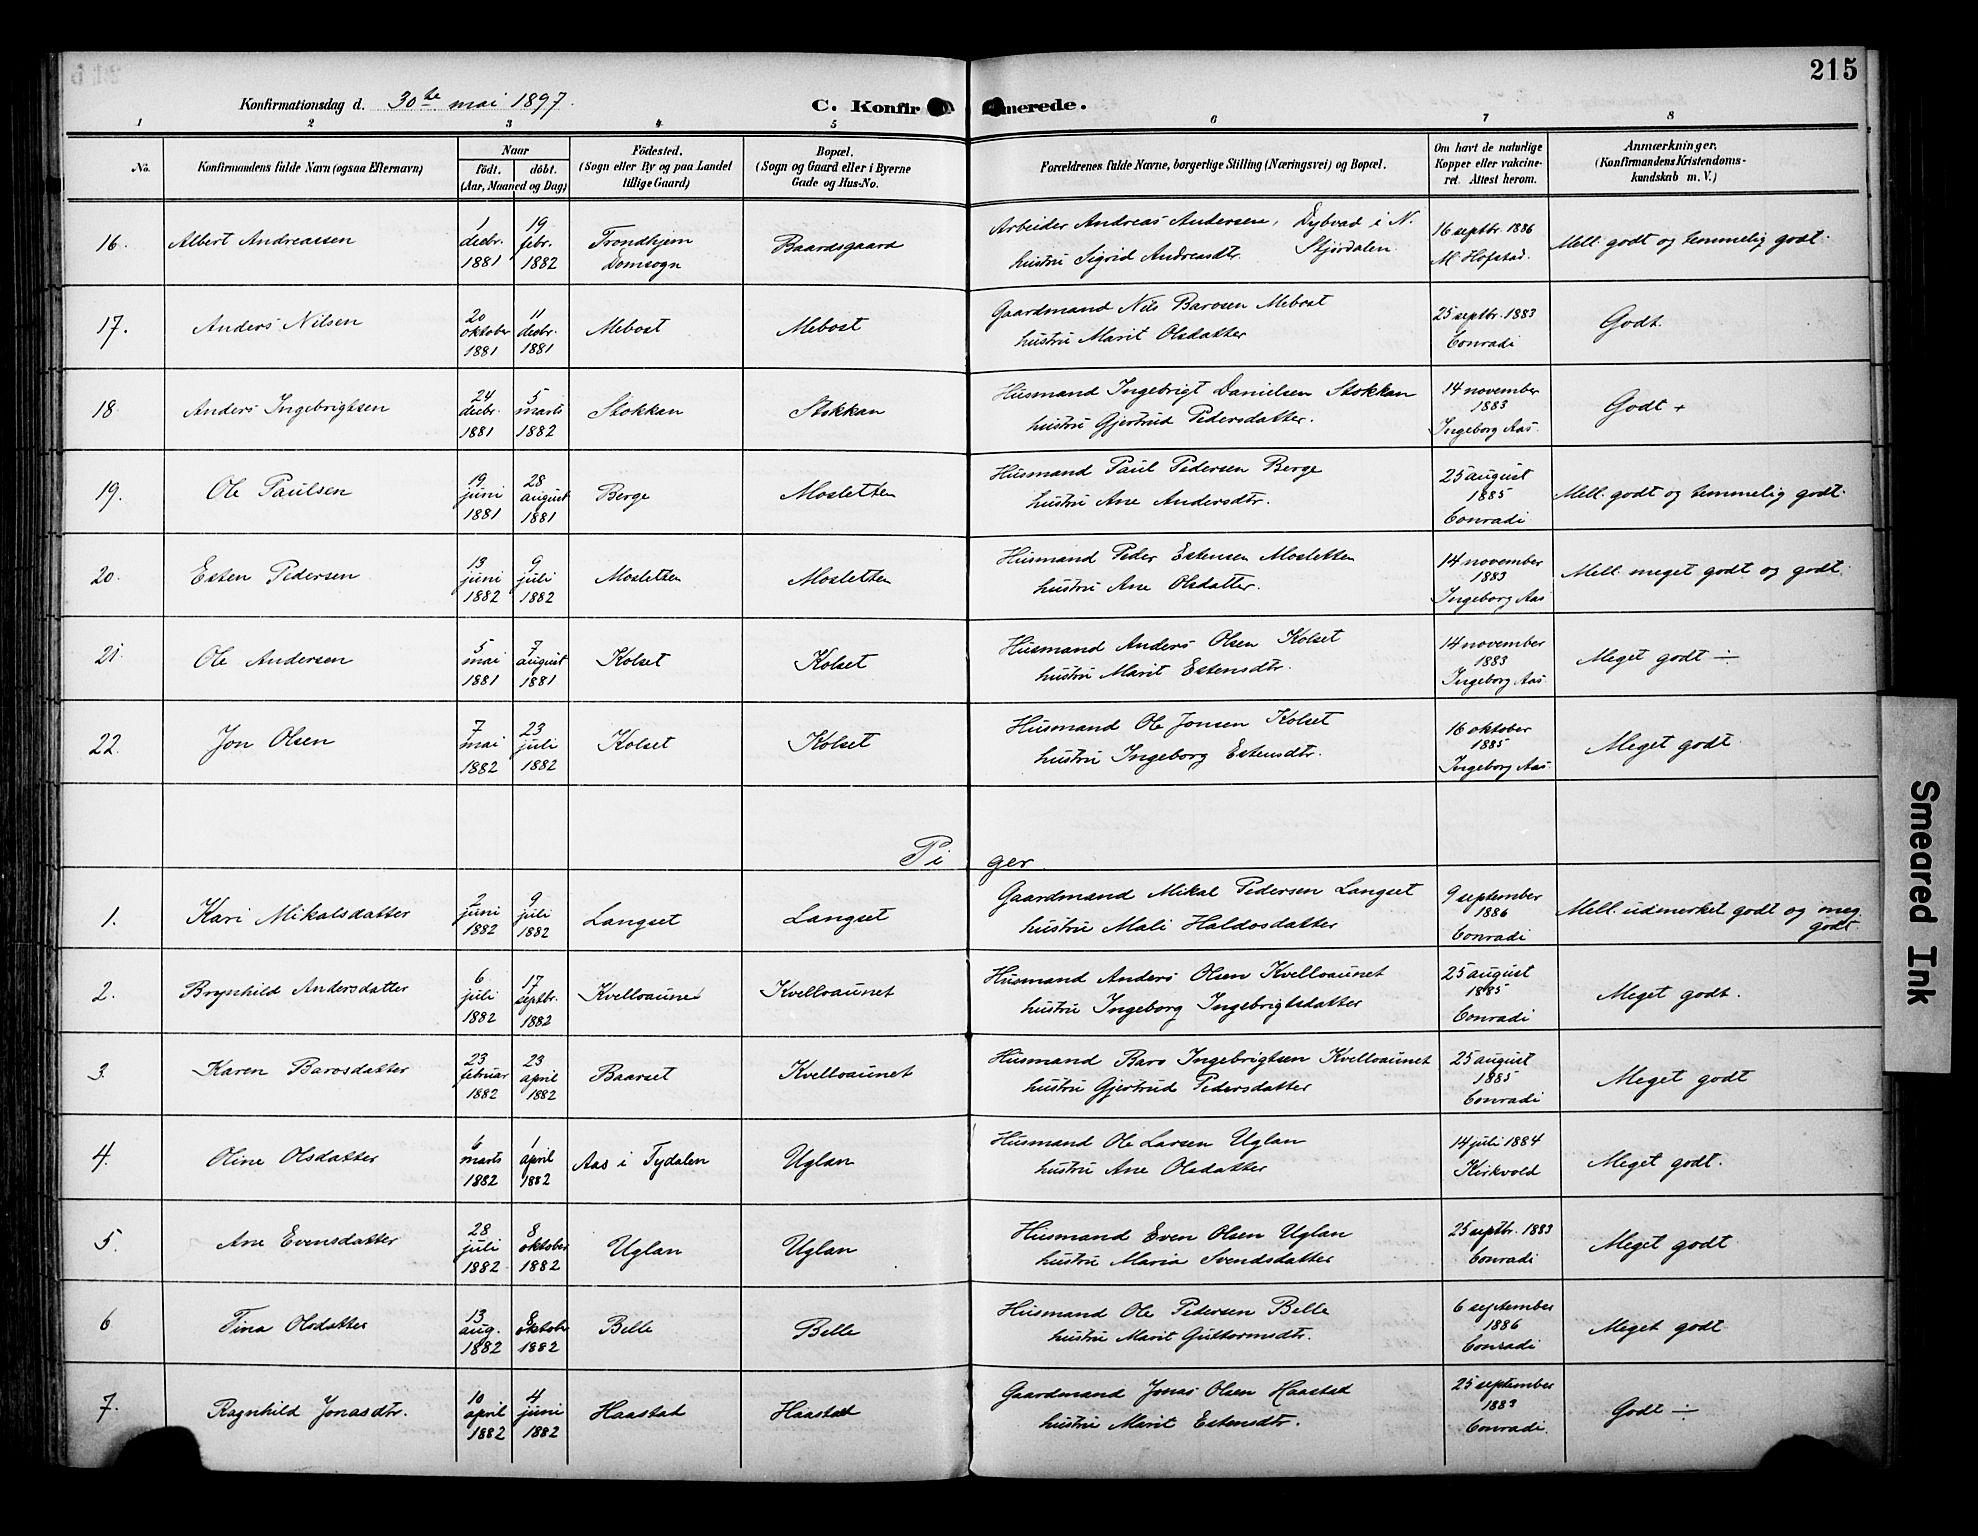 215
Konfirmationsdag d. 30te mai 1897.
C. Konfirmerede.
1 2 3 4 5 6 7 8
No. Konfirmandens fulde Navn (ogsaa Efternavn) Naar födt. döbt. (Aar, Maaned og Dag) Födested. (Sogn eller By og paa Landet tillige Gaard) Bopæl. (Sogn og Gaard eller i Byerne Gade og Hus-No. Forældrenes fulde Navne, borgerlige Stilling (Næringsvei) og Bopæl. Om havt de naturlige Kopper eller vakcineret. Attest herom. Anmærkninger. (Konfirmandens Kristendomskundskab m. V.)
16. Albert Andreassen 1 decbr. 1881 19 febr. 1882 Trondhjem Domsogn Baardsgaard Arbeider Andreas Andersen, Dybvad i N. Stjørdalen. hustru Sigrid Andreasdtr. 16 septbr. 1886 M. Hofstad. Mell. godt og temmelig godt.
17. Anders Nilsen 20 oktober 1881 11 decbr. 1881 Mebost Mebost Gaardmand Nils Barosen Mebost hustru Marit Olsdatter 25 septbr. 1883 Conradi Godt.
18. Anders Ingebrigtsen 24 decbr. 1881 5 marts 1882 Stokkan Stokkan Husmand Ingebrigt Danielsen Stokkan hustru Gjertrud Pedersdatter. 14 november 1883 Ingeborg Aas. Godt +
19. Ole Paulsen 19 juni 1881 28 august 1881 Berge Mosletten Husmand Paul Pedersen Berge hustru Ane Andersdtr. 25 august 1885 Conradi Mell. godt og temmelig godt.
20. Esten Pedersen 13 juni 1882 9 juli 1882 Mosletten Mosletten Husmand Peder Estensen Mosletten hustru Ane Olsdatter. 14 november 1883 Ingeborg Aas Mell. meget godt og godt.
21. Ole Andersen 5 mai 1881 7 august 1881 Kolset Kolset Husmand Anders Olsen Kolset hustru Marit Estensdtr. 14 november 1883 Ingeborg Aas. Meget godt ÷
22. Jon Olsen 7 mai 1882 23 juli 1882 Kolset Kolset Husmand Ole Jonsen Kolset hustru Ingeborg Estensdtr. 16 oktober 1885 Ingeborg Aas. Meget godt.
Piger
1. Kari Mikalsdatter 2 juni 1882 9 juli 1882 Langset Langset Gaardmand Mikal Pedersen Langset hustru Mali Haldosdatter 9 september 1886 Conradi Mell. udmerket godt og meg. godt.
2. Brynhild Andersdatter 6 juli 1882 17 septbr. 1882 Kvelloaunet Kvelloaunet Husmand Anders Olsen Kvelloaunet hustru Ingeborg Ingebrigtsdatter 25 august 1885 Conradi Meget godt.
3. Karen Barosdatter 23 februar 1882 23 april 1882 Baarset Kvelloaunet Husmand Baro Ingebrigtsen Kvelloaunet hustru Gjertrud Pedersdatter 25 august 1885 Conradi Meget godt
4. Oline Olsdatter 6 marts 1882 1 april 1882 Aas i Tydalen Uglan Husmand Ole Larsen Uglan hustru Ane Olsdatter 14 juli 1884 Kirkvold Meget godt.
5. Ane Evensdatter 28 juli 1882 8 oktober 1882 Uglan Uglan Husmand Even Olsen Uglan hustru Maria Svendsdatter 25 septbr. 1883 Conradi Meget godt
6 Tina Olsdatter 13 aug. 1882 8 oktober 1882 Belle Belle Husmand Ole Pedersen Belle hustru Marit Guttormsdtr. 6 september 1886 Conradi Meget godt
7. Ragnhild Jonasdtr. 10 april 1882 4 juni 1882 Haastad Haastad Gaardmand Jonas Olsen Haastad hustru Marit Estensdtr. 25 september 1883 Conradi. Godt ÷
Smeared Ink